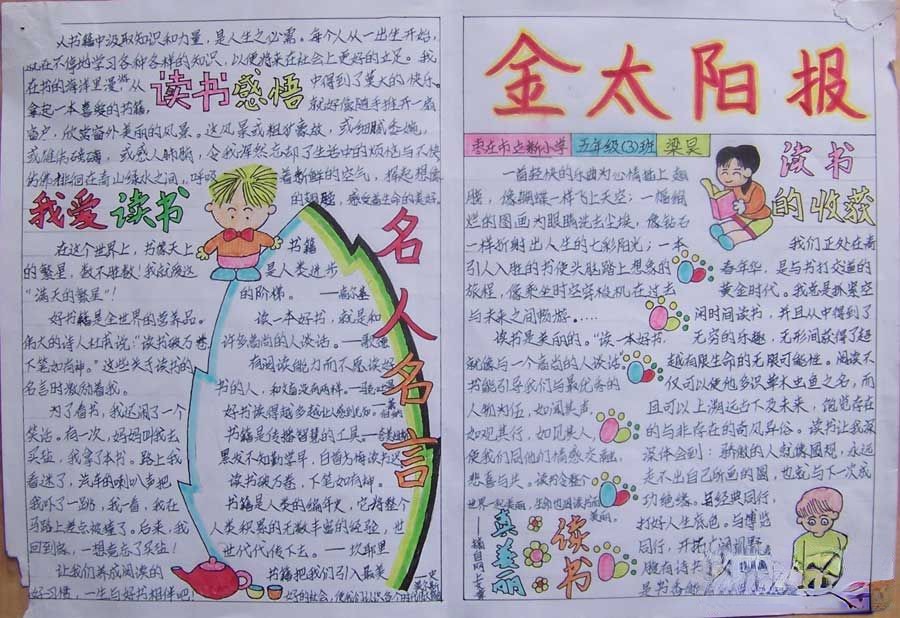 从书籍中汲取知识和力量，是人生之必需。每个人从一出生开始，
就在不停地学习各种各样的知识，以便将来在社会上更好的立足。我
在书的海洋里漫
中得到了莫大的快乐。
读书感悟
拿起一本喜爱的书籍
就好像随手推开一扇
窗户，欣赏窗外美丽的风景。这风景或粗犷豪放，或细腻委婉，
或雄伟磅礴，或感人肺腑，令我浑然忘却了生活中的烦恼与不快
仿佛徘徊在青山绿水之间，呼吸
着新鲜的空气，
的翅膀，感受着生命的美好。
我爱读书
在这个世界上，书像天上
的繁星，数不胜数！我就读这
“满天的繁星”！
好书籍是全世界的营养品。
伟大的诗人杜甫说“读书破万卷
下笔如有神”。这些关于读书的
名言也激励着我。
为了看书，我还闹了一个
笑话。有一次，妈妈叫我去
买盐，我拿了本书。路上我
看迷了，汽车的喇叭声把
我吓了一跳，我一看，我在
马路上差点被撞了。后来，我
回到家，一想竟忘了买盐！
让我们养成阅读的
好习惯，一生与好书相伴吧！
名人名言
书籍
是人类进步
的阶梯。——高尔基
读一本好书，就是和
许多高尚的人谈话。——歌德
有阅读能力而不愿读好
书的人，和文盲没有两样。
好书读得越多越让人感到无知。
书籍是传播智慧的工具。
黑发不知勤学早，白首方悔读书迟
读书破万卷，下笔如有神。
书籍是人类的编年史，它将整个
人类积累的无数丰富的经验，世
世代代传下去。
书籍把我们引入最美
好的社会，使我们认识各个时代
金太阳报
枣庄市立新小学 五年级(3)班 梁昊
读书
的收获
一首轻快的乐曲为心情插上翅
膀，像蝴蝶一样飞上天空；一幅绚
烂的图画为眼睛洗去尘埃，像钻石
一样折射出人生的七彩阳光；一本
引人入胜的书使头脑踏上想象的
旅程，像乘坐时空穿梭机在过去
与未来之间畅游。……
读书是美丽的。“读一本好书，
就像与一个高尚的人谈话”
书能引导我们与最优秀的
人物为伍，如闻其声，
如观其行，如见其人，
使我们同他们情感交融，
悲喜与共。读书会让
世界一起美丽，
美丽。
我们正处在青
春年华，是与书打交道的
黄金时代。我总是抓紧空
闲时间读书，并且从中得到了
无穷的乐趣，无形间获得了超
越有限生命的无限可能性。阅读不
仅可以使他多识草木虫鱼之名，而
且可以上溯远古下及未来，饱览存在
的与非存在的奇风异俗。读书让我深
深体会到：骄傲的人就像圆规，永远
走不出自己所画的圆，也就与下一次成
功绝缘。与经典同行，
打好人生底色。与博览
同行，开
读书
真美丽